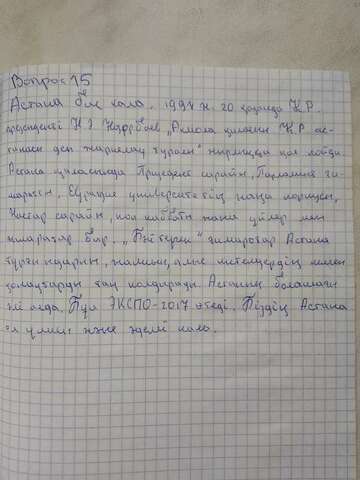 Вопрос 15
Астана бас қала. 1997 ж. 20 қазанда Қ.Р.
президенті Н.Ә Назарбаев „Ақмола қаласын Қ.Р ас-
танасы деп жариялау туралы" жарлыққа қол қойды.
Астана қаласында Президент сарайы, Парламент ғи-
мараты, Еуразия университетінің жаңа корпусы,
Хастар сарайы, көп қабатты жаңа үйлер мен
ғимараттар бар. „Бәйтерек" ғимараттар Астана
тұрғындарын, жақын, алыс шетелдердің келген
қонақтарды таң қалдырады. Астананың болашағы
әлі алда. Бұл ЭКСПО-2017 өтеді. Біздің Астана
ең үлкен және әдемі қала.